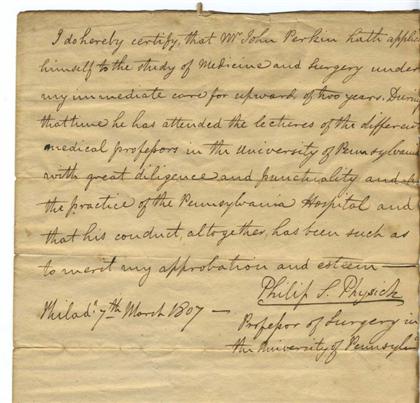 I do hereby certify, that Mr John Perkin hath applie
himself to the study of Medicine and Surgery under
my immediate care for upwards of two years. During
that time he has attended the lectures of the different
medical professors in the University of Pennsylvania
with great diligence and punctuality and
the practice of the Pennsylvania Hospital and
that his conduct, altogether, has been such as
to merit my approbation and esteem —
Philip S. Physick
Philada. 7th March 1807 —
Professor of Surgery in
the University of Pennsylva